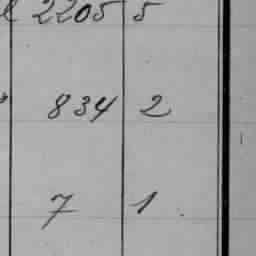 2205 5
834 2
7 1